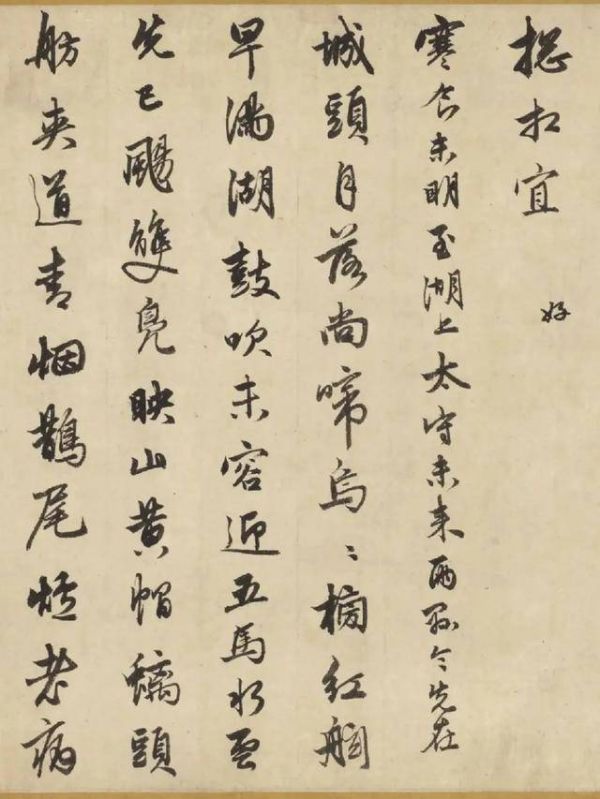 揔相宜 好
寒食未明至湖上太守未来兩縣令先在
城頭月落尚啼烏〻榜紅舷
早滿湖鼓吹未容迎五馬水雲
先已颺雙鳧映山黄帽螭頭
舫夾道青烟鵲尾爐老病